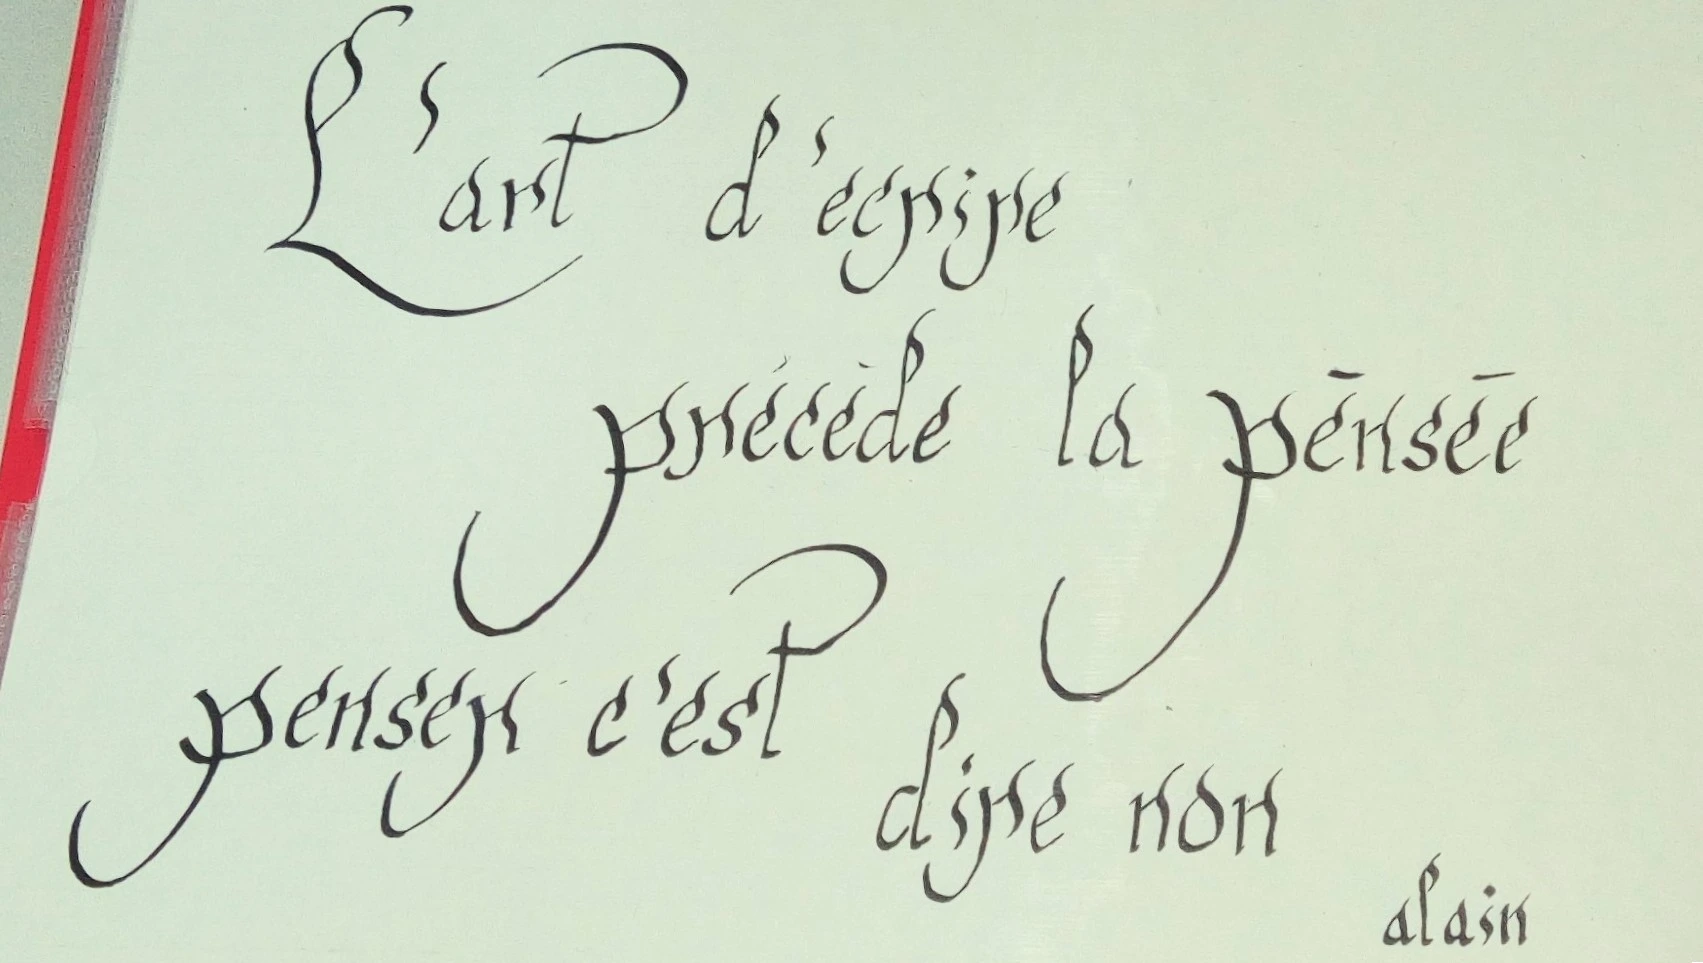 L'art d'ecrire
précède la pēnsēe
penser c'est
dire non
alain